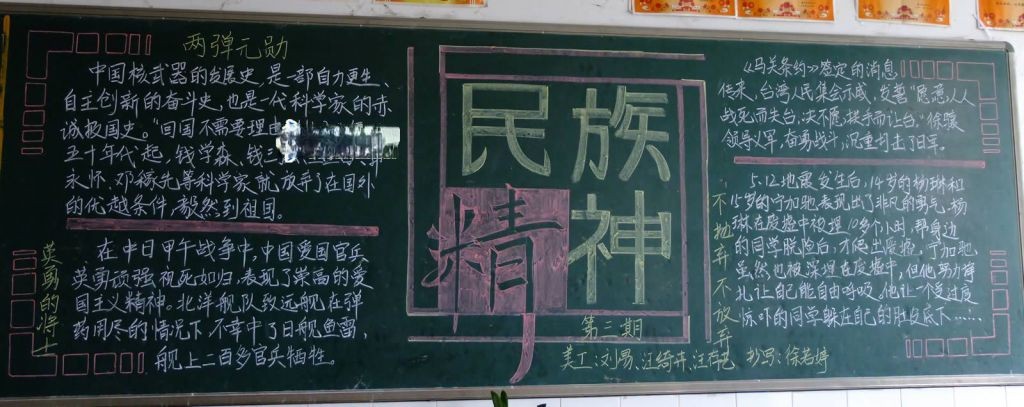 两弹元勋
中国核武器的发展史,是一部自力更生、
自主创新的奋斗史,也是一代科学家的赤
诚报国史。“回国不需要理由
五十年代起,钱学森、钱三
永怀、邓稼先等科学家就放弃了在国外
的优越条件,毅然到祖国。
英勇的将士
在中日甲午战争中,中国爱国官兵
英勇顽强视死如归,表现了崇高的爱
国主义精神。北洋舰队致远舰在弹
药用尽的情况下不幸中了日舰鱼雷,
舰上二百多官兵牺牲。
民族
精神
第三期
美工:刘易、汪绮卉、汪 书写:徐若婷
《马关条约》签定的消息
传来,台湾人民集会示威,发誓“愿人人
战死而失台,决不愿拱手而让台”徐骧
领导义军,奋勇战斗,沉重打击了日军。
不抛弃不放弃
5.12地震发生后,14岁的杨琳和
15岁的宁加驰表现出了非凡的勇气。杨
琳在废墟中被埋10多个小时,帮身边
的同学脱险后,才爬出废墟,宁加驰
虽然也被深埋在废墟中,但他努力挣
扎让自己能自由呼吸。他让一个受过度
惊吓的同学躲在自己的肚皮底下……